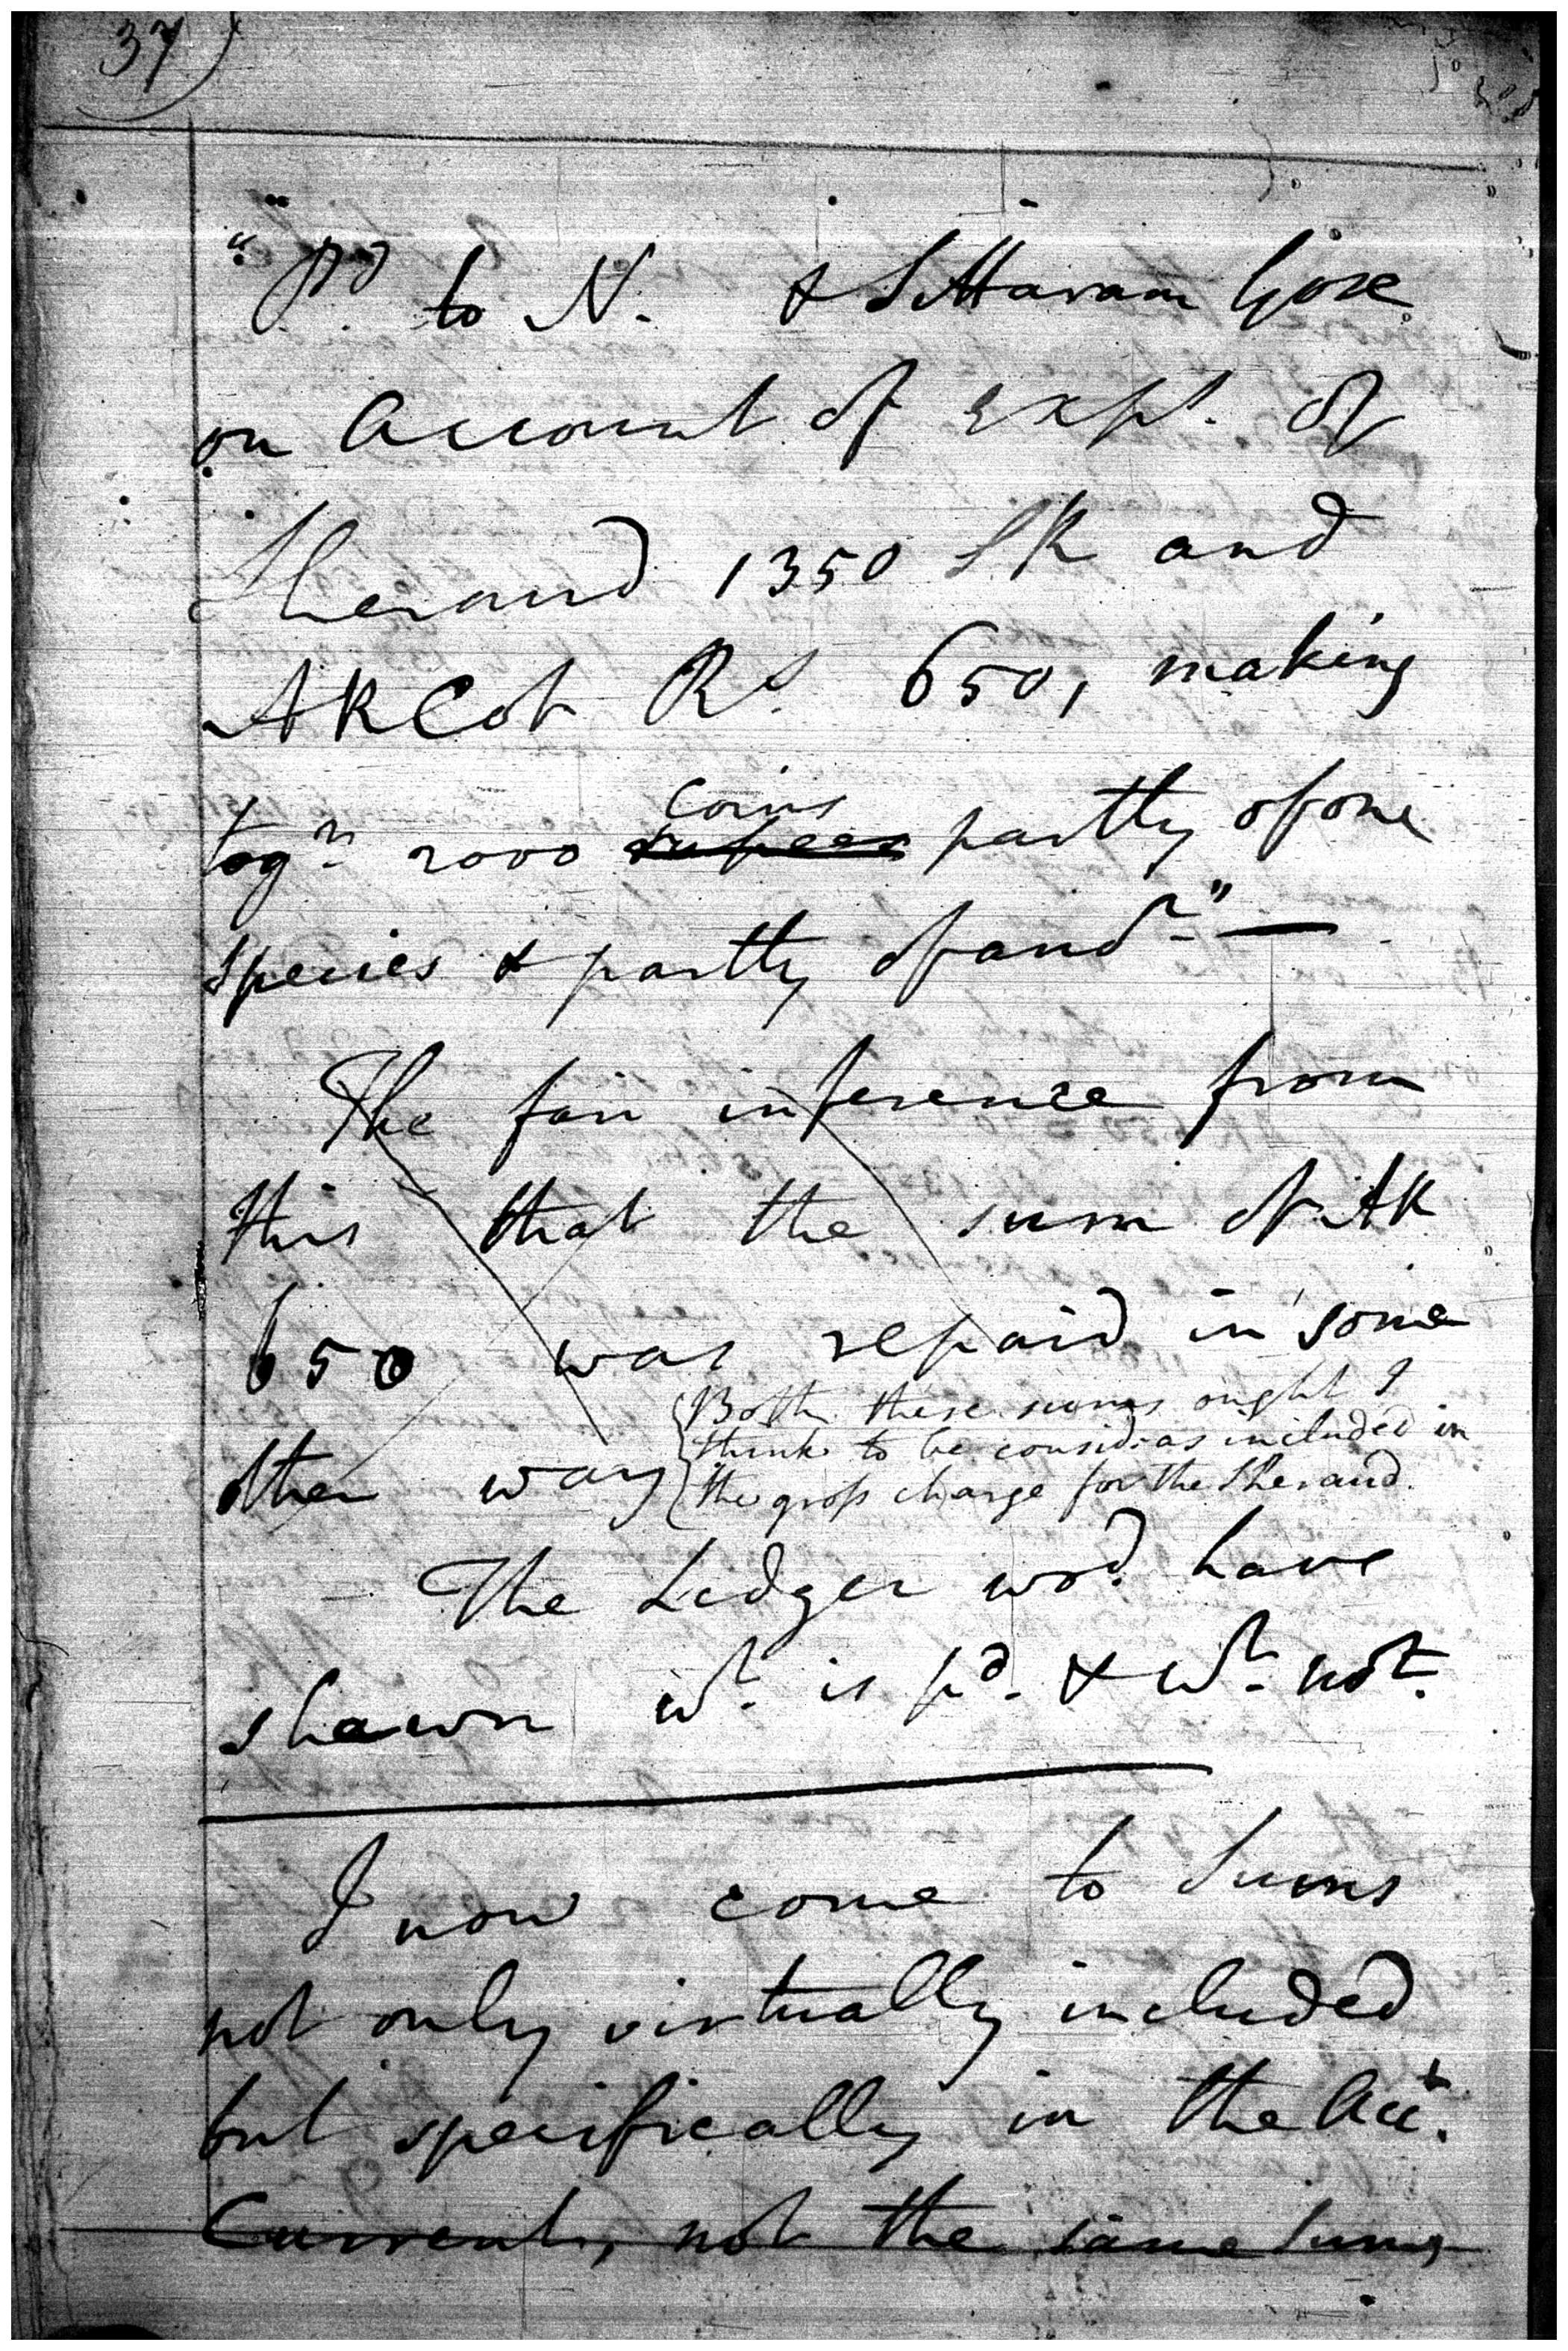 37)
"Pd to N. & Sittaram Gose
on Account of Exps. of
Sheraud 1350 S.R and
ARCot Rs. 650, making
togr. 2000 rupees coins partly of one
species & partly of anor." —
The fair inference from
this that the sum of AR
650 was repaid in some
other way
Both these sums ought I
think to be consid: as included in
the gross charge for the Sheraud.
The Ledger wod. have
shewn wt. is pd. & wt. not.
I now come to Sums
not only virtually included
but specifically in the Acct.
Current, not the same sums